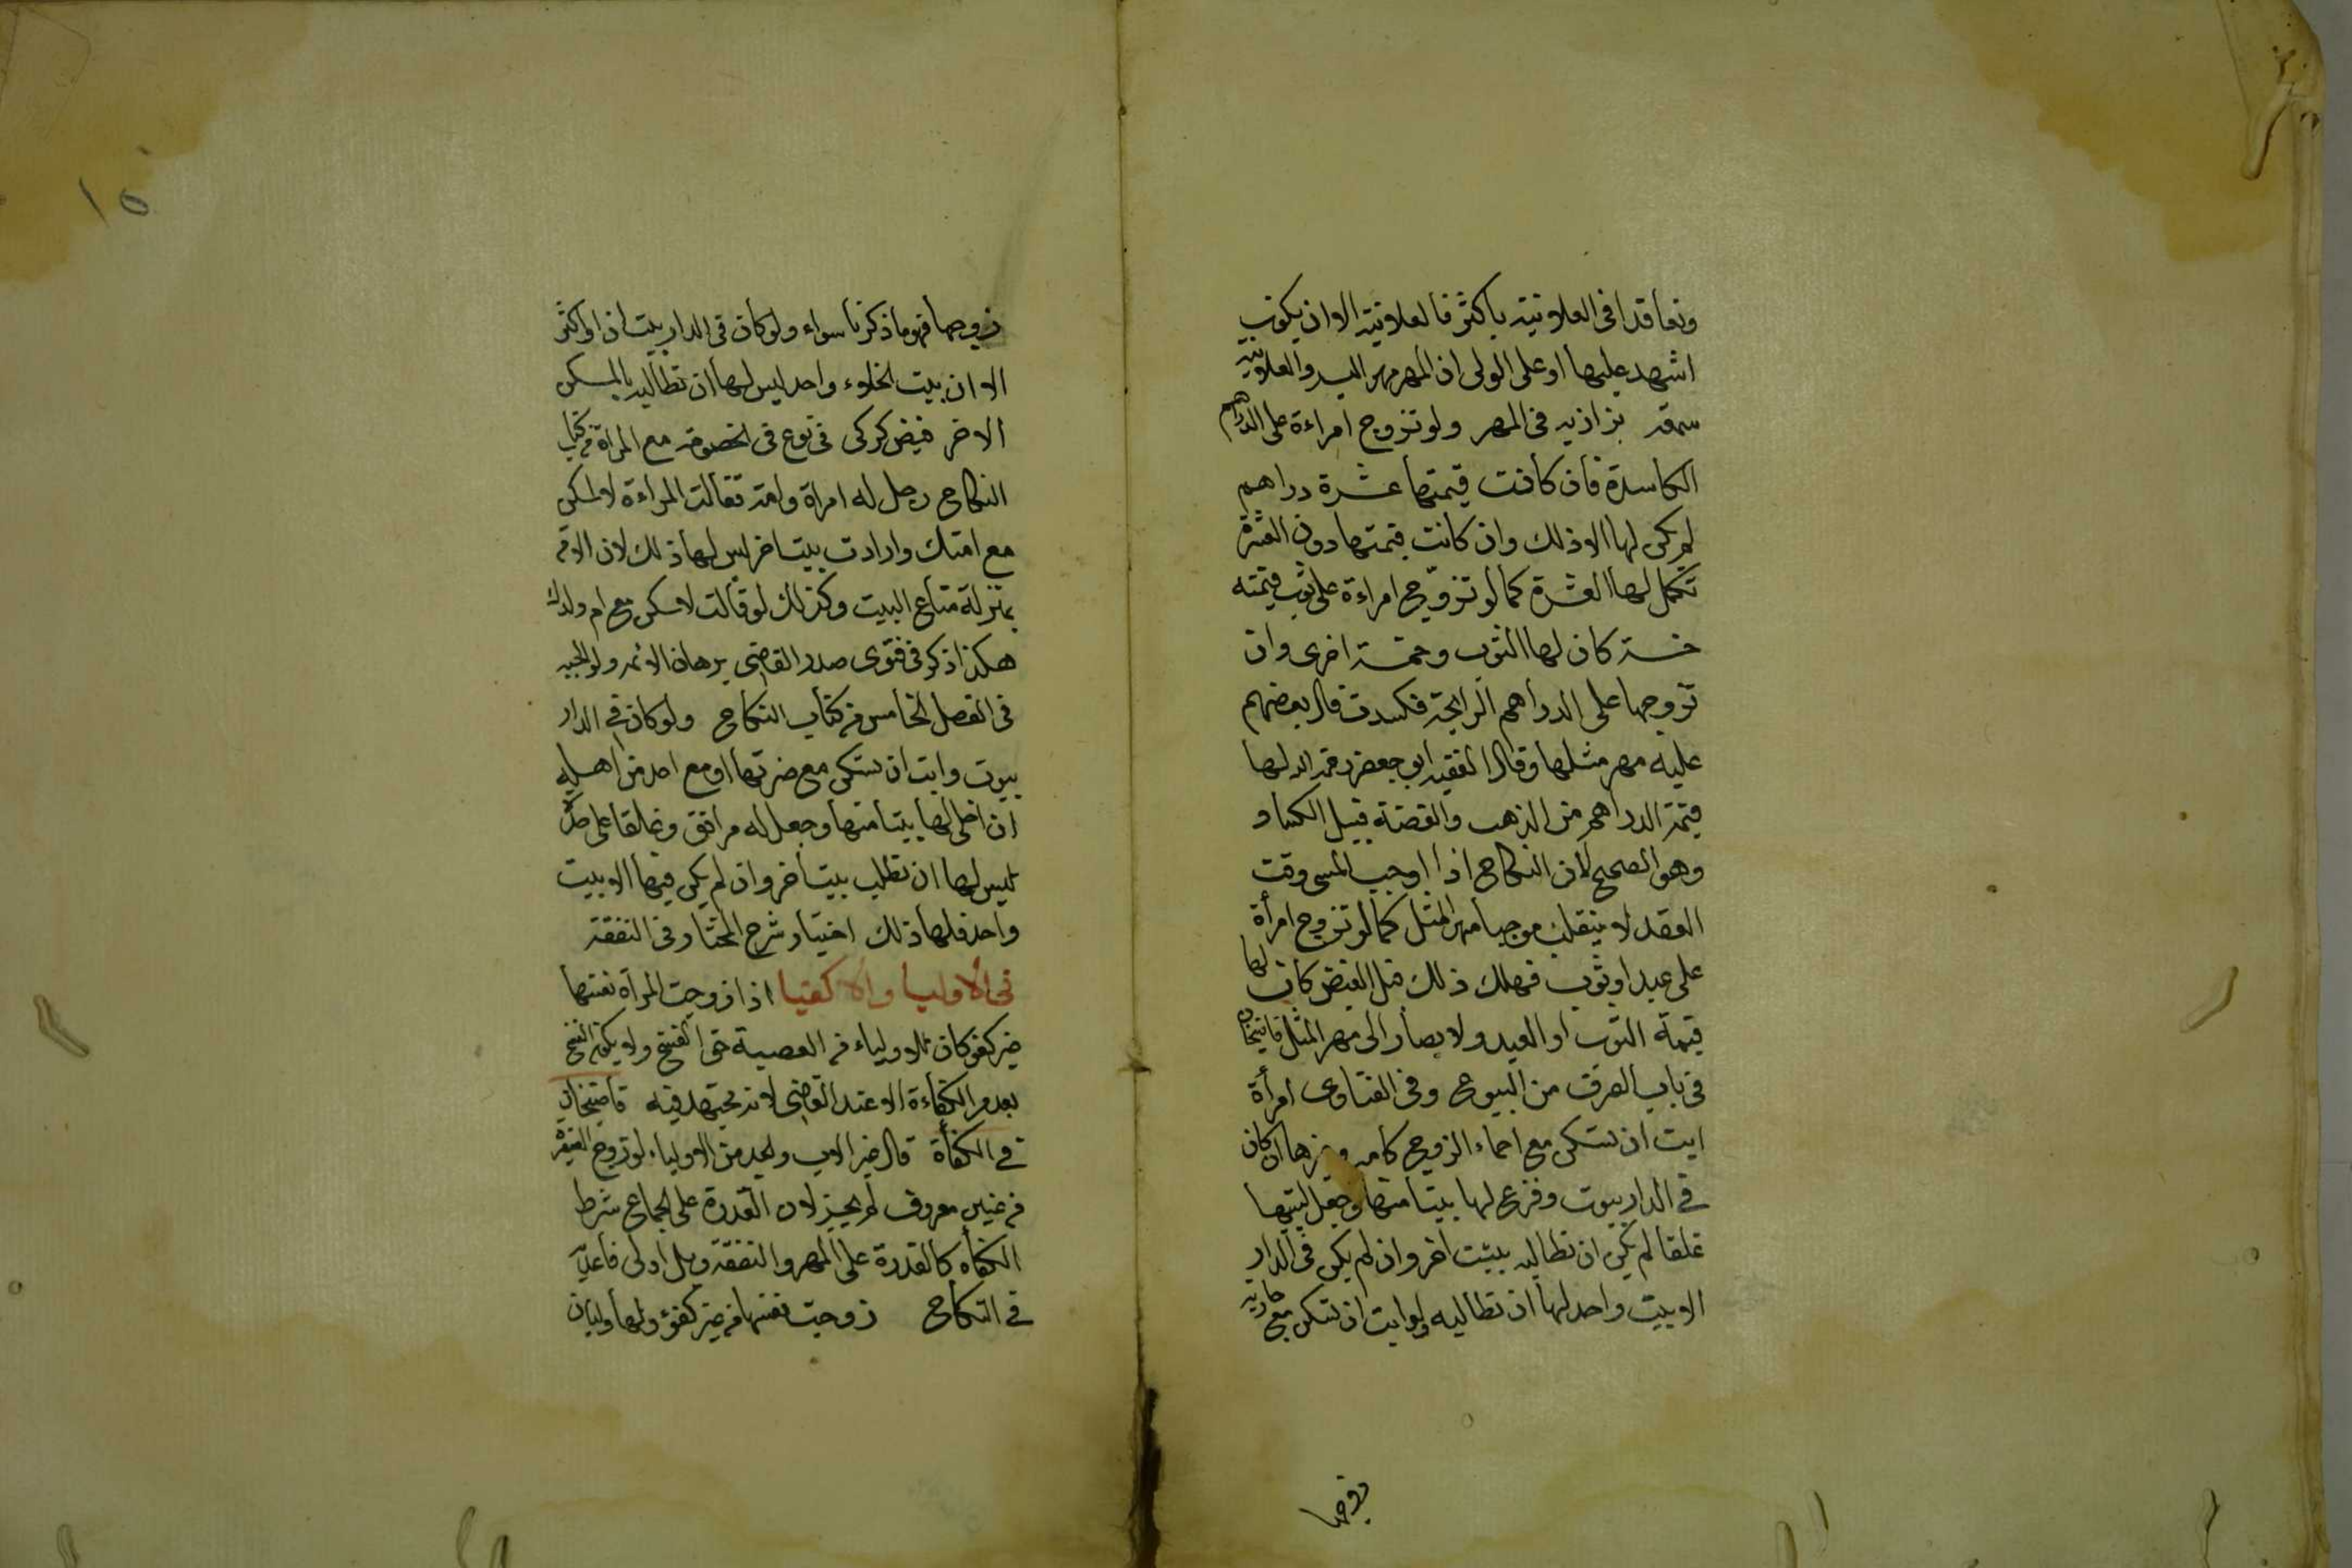 وتعاقدا فى العلانية باكثر فالعلانية الا ان يكون
اشهد عليها او على الولى ان المهر مهر السر والعلانية
سمعة بزازيه فى المهر ولو تزوج امراءة على الدراهم
الكاسدة فان كانت قيمتها عشرة دراهم
لم يكن لها الا ذلك وان كانت قيمتها دون العشرة
تكمل لها العشرة كما لو تزوج امراءة على ثوب قيمته
خمسة كان لها الثوب وخمسة اخرى وان
تزوجها على الدراهم الرايجة فكسدت قال بعضهم
عليه مهر مثلها وقال الفقيه ابو جعفر رحمه الله لها
قيمة الدراهم من الذهب والفضة قبيل الكساد
وهو الصحيح لان النكاح اذا اوجب المسمى وقت
العقد لا ينقلب موجبا مهر المثل كما لو تزوج امرأة
على عبد او ثوب فهلك ذلك قبل القبض كان لها
قيمة الثوب او العبد ولا يصار الى مهر المثل قاضيخان
فى باب الصرف من البيوع وفى الفتاوى امرأة
ابت ان تسكن مع احماء الزوج كامه وغيرها ان كان
فى الدار بيوت وفرغ لها بيتا منها وجعل لبيتها
غلقا لم يكن ان تطالبه ببيت اخر وان لم يكن فى الدار
الا بيت واحد لها ان تطالبه ولو ابت ان تسكن مع جارية
زوجها
١٥
زوجها فهو ما ذكرنا سواء ولو كان فى الدار بيتان او اكثر
الا ان بيت الخلوء واحد ليس لها ان تطالبه بالمسكن
الاخر فيض كركى فى نوع فى الخصومة مع المراة من كتاب
النكاح رجل له امراة وامة فقالت المراءة لا اسكن
مع امتك وارادت بيتا اخر ليس لها ذلك لان الامة
بمنزلة متاع البيت وكذلك لو قالت لا اسكن مع ام ولدك
هكذا ذكر فى فتوى صدر القاضى برهان الائمه ولوالجيه
فى الفصل الخامس من كتاب النكاح ولو كان فى الدار
بيوت وابت ان تسكن مع ضرتها او مع احد من اهله
ان اخلى لها بيتا منها وجعل له مرافق وغلقا على حدة
ليس لها ان تطلب بيتا اخر وان لم يكن فيها الا بيت
واحد فلها ذلك اختيار شرح المختار فى النفقة
فى الاوليا والاكفيا اذا زوجت المرأة نفسها
غير كفو كان للاولياء من العصبة حق الفسخ ولا يكون الفسخ
بعدم الكفاءة الا عند القاضى لانه مجتهد فيه قاضيخان
فى الكفاة قال غير الاب والجد من الاولياء لو زوج الصغيرة
من عنين معروف لم يجز لان القدرة على الجماع شرط
الكفأه كالقدرة على المهر والنفقة وبل اولى قاعديه
فى النكاح زوجت نفسها من غير كفوء ولها وليان